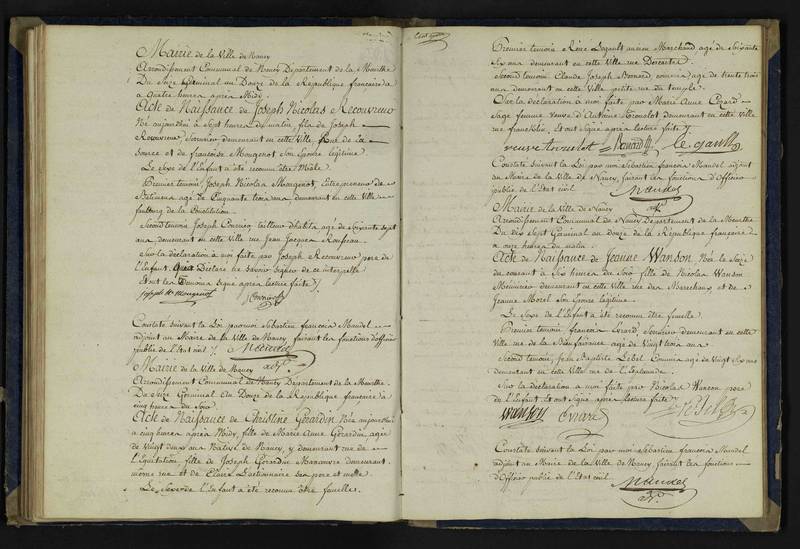 Mairie de la Ville de Nancy
Arrondissement Communal de Nancy Département de la Meurthe
Du Seize Germinal an Douze de la République française à
a quatre heures après Midy.
Acte de Naissance de Joseph Nicolas Recouvreur
Né aujourdhui à Sept heures du matin, fils de Joseph
Recouvreur, Serrurier demeurant en cette Ville, Rue de la
Source et de françoise Mougenot Son Epouse légitime.
Le Sexe de l'Enfant a été reconnu être Mâle
Premier temoin, Joseph Nicolas Mougenot, Entrepreneur de
Batimens agé de Cinquante trois ans demeurant en cette Ville
faubourg de la Constitution.
Second temoin Joseph tailleur d'habits agé de Soixante sept
ans demeurant en cette Ville rue Jean Jacques Rousseau.
Sur la déclaration à moi faite par Joseph Recouvreur pere de
l'Enfant, Qui a Déclaré ne savoir signer de ce interpellé
Et ont les Temoins Signé après lecture faite ./.
Joseph Mougenot
Constaté Suivant la Loi par moi Sébastien françois Mandel
adjoint au Maire de la Ville de Nancy faisant les fonctions d'officier
public de l'Etat civil ./. Mandel
adjt.
Mairie de la Ville de Nancy
Arrondissement Communal de Nancy Département de la Meurthe.
Du Seize Germinal an Douze de la République française à
cinq heures du Soir.
Acte de Naissance de Christine Gérardin Née aujourdhui
a cinq heures après Midy, fille de Marie Anne Gérardin agée
de Vingt deux ans Native de Nancy, y demeurant rue de
l'Equitation, fille de Joseph Gérardin Manœuvre demeurant
même rue et de ses pere et mere
Le Sexe de l'Enfant a été reconnu être femelle.
Premier temoin ancien Marchand agé de Soixante
Six ans demeurant en cette Ville rue Descartes.
Second temoin, Claude Joseph Bernard, agé de trente trois
ans demeurant en cette Ville petite rue du temple.
Sur la déclaration à moi faite par Marie Anne Evrard
Sage femme Veuve d'Antoine Tronelot demeurant en cette Ville
rue franklin, Et ont Signé après lecture faite ./.
veuve tronelot Bernard
Constaté Suivant la Loi par moi Sébastien françois Mandel adjoint
au Maire de la Ville de Nancy, faisant les fonctions d'officier
public de l'Etat civil Mandel
adjt.
Mairie de la Ville de Nancy
Arrondissement Communal de Nancy Département de la Meurthe
Du dix Sept Germinal an douze de la République française
a onze heures du matin.
Acte de Naissance de Jeanne Wanson, Née le Seize
du courant à Six heures du Soir fille de Nicolas Wanson
Menuisier demeurant en cette Ville rue des Marechaux et de
Jeanne Morel Son Epouse légitime.
Le Sexe de l'Enfant a été reconnu être femelle.
Premier temoin françois Evrard, Serrurier demeurant en cette
Ville rue de la Bienfaisance agé de Vingt trois ans
Second temoin, Jean Baptiste Lebel agé de Vingt Six ans
demeurant en cette Ville rue de l'Esplanade.
Sur la déclaration à moi faite par Nicolas Wanson pere
de l'Enfant Et ont Signé après lecture faite ./.
Wanson Evrard
Constaté Suivant la Loi par moi Sébastien françois Mandel
adjoint au Maire de la Ville de Nancy faisant les fonctions
d'officier public de l'Etat civil
Mandel
adjt.